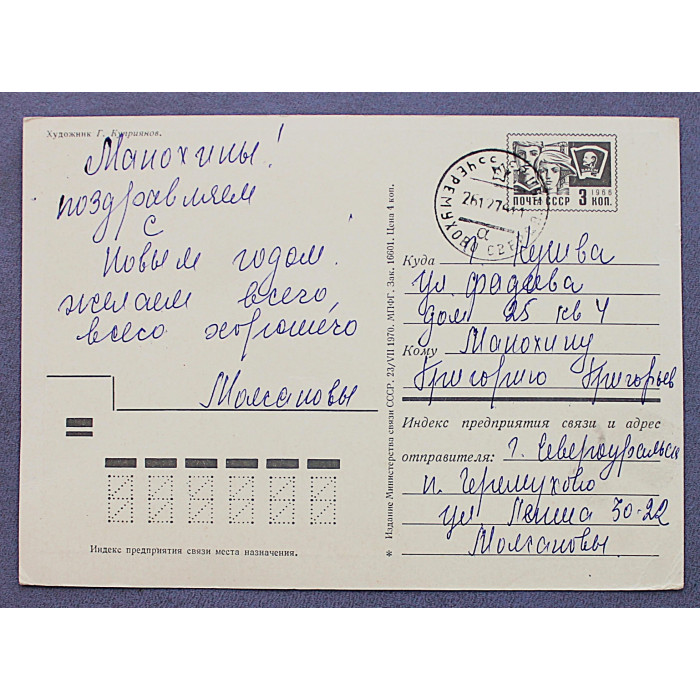 Художник Г. Куприянов.
Манохины!
поздравляем
с
Новым годом!
желаем всего,
всего хорошего
Молгановы
Индекс предприятия связи места назначения.
* Издание Министерства связи СССР. 23/VII 1970. МПФГ. Зак. 16601. Цена 4 коп.
ПОЧТА СССР 3 КОП.
1966
ЧЕРЕМУХОВО
261274
а
Куда г Кушва
ул Фадеева
дом 25 кв 4
Кому Манохину
Григорию Григорьев
Индекс предприятия связи и адрес
отправителя: г. Североуральск
п. Черемухово
ул Ленина 30-22
Молгановы